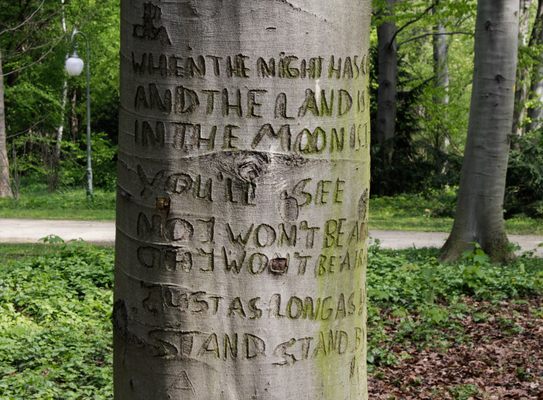 WHEN THE NIGHT HAS
AND THE LAND IS
IN THE MOON IS
YOU'LL SEE
NO I WON'T BE A
OH I WON'T BE A
JUST AS LONG AS
STAND STAND B
A